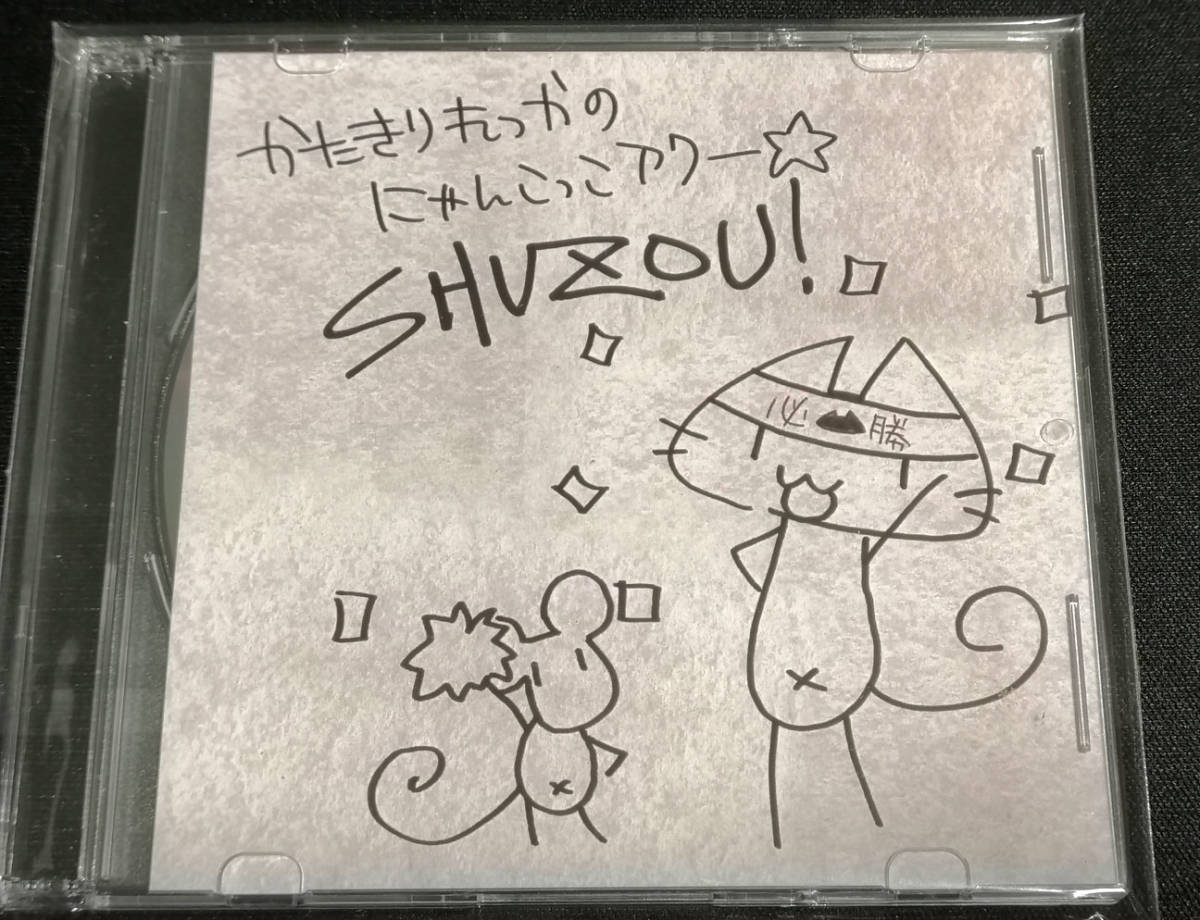 かたきりれっかの
にゃんこっこアワー☆
SHUZOU!
必勝